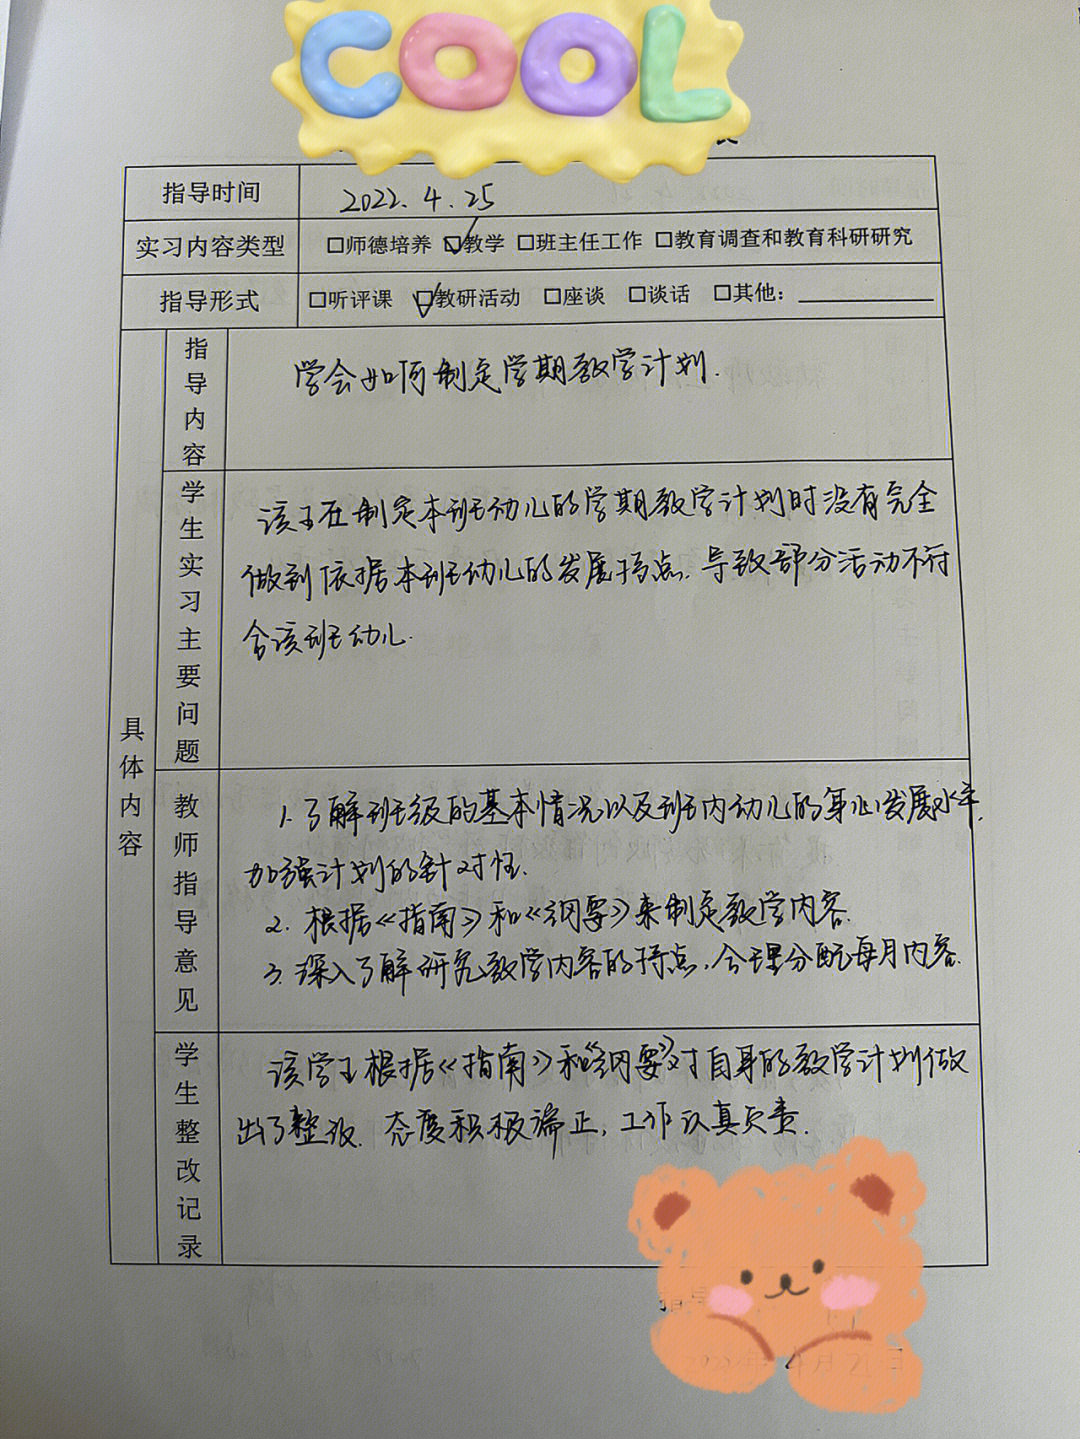 COOL
指导时间 2022.4.25
实习内容类型 □师德培养 ☑教学 □班主任工作 □教育调查和教育科研研究
指导形式 □听评课 ☑教研活动 □座谈 □谈话 □其他：
具体内容
指导内容
学会如何制定学期教学计划.
学生实习主要问题
该王在制定本班幼儿的学期教学计划时没有完全
做到依据本班幼儿的发展特点.导致部分活动不符
合该班幼儿.
教师指导意见
1.了解班级的基本情况以及班内幼儿的身心发展水平,
加强计划的针对性.
2.根据《指南》和《纲要》来制定教学内容.
3.深入了解研究教学内容的特点,合理分配每月内容.
学生整改记录
该学王根据《指南》和《纲要》对自身的教学计划做
出了整改.态度积极端正,工作认真负责.
指导
2022年4月25日